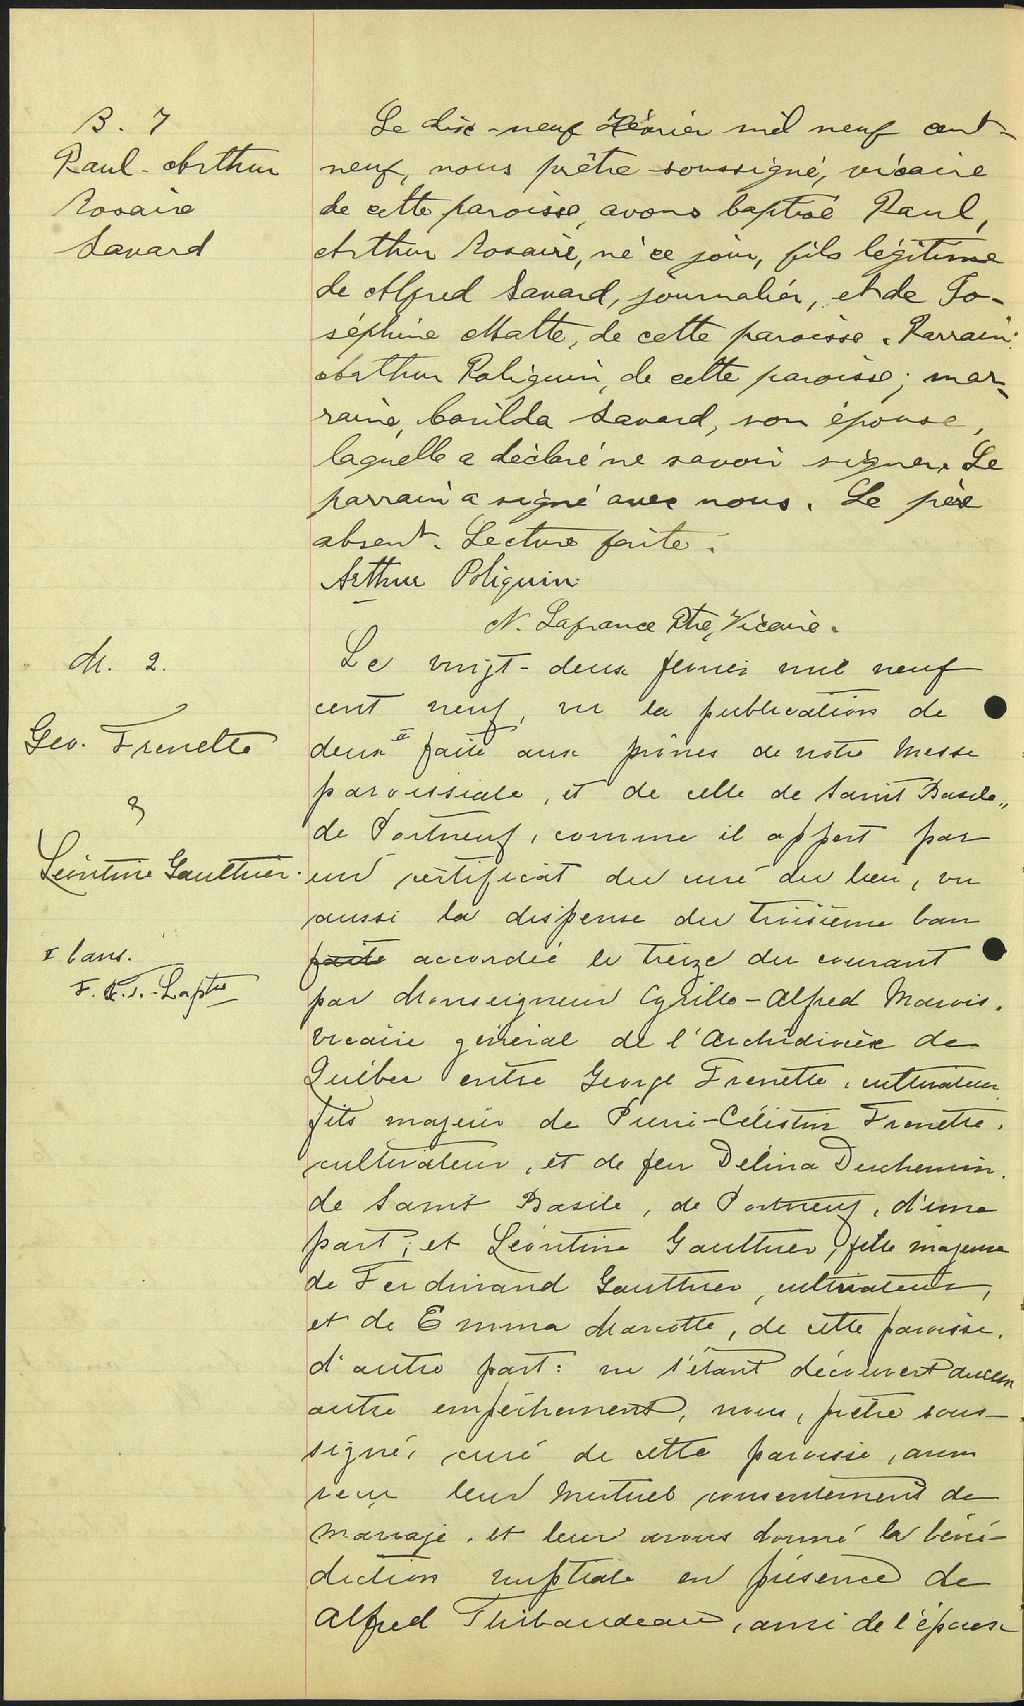 B. 7
Paul-Arthur
Rosaire
Savard
Le dix-neuf Février mil neuf cent-
neuf, nous prêtre soussigné, vicaire
de cette paroisse, avons baptisé Paul,
Arthur Rosaire, né ce jour, fils légitime
de Alfred Savard, journalier, et de Jo-
séphine Matte, de cette paroisse. Parrain:
Arthur Poliquin, de cette paroisse; mar-
raine, Corilda Savard, son épouse,
laquelle a déclaré ne savoir signer. Le
parrain a signé avec nous. Le père
absent. Lecture faite.
Arthur Poliquin
N. Lafrance Ptre, Vicaire.
M. 2.
Geo. Frenette
&
Léontine Gauthier.
I bans.
Le vingt-deux fevrier mil neuf
cent neuf, vu la publication de
deux I faite aux prônes de notre Messe
paroissiale, et de celle de Saint Basile,,
de Portneuf, comme il appert par
un certificat du curé du lieu, vu
aussi la dispense du troisième ban
faite accordée le treize du courant
par Monseigneur Cyrille-Alfred Marois,
vicaire général de l'Archidiocèse de
Québec entre George Frenette, cultivateur,
fils majeur de Pierre-Célestin Frenette,
cultivateur, et de feu Délina Duchemin,
de Saint Basile, de Portneuf, d'une
part; et Léontine Gauthier, fille majeure
de Ferdinand Gauthier, cultivateur,
et de Emma Marcotte, de cette paroisse,
d'autre part: ne s'étant découvert aucun
autre empêchement, nous, prêtre sous-
signé, curé de cette paroisse, avons
reçu leur mutuel consentement de
mariage, et leur avons donné la béné-
diction nuptiale en présence de
Alfred Thibaudeau, ami de l'épouse